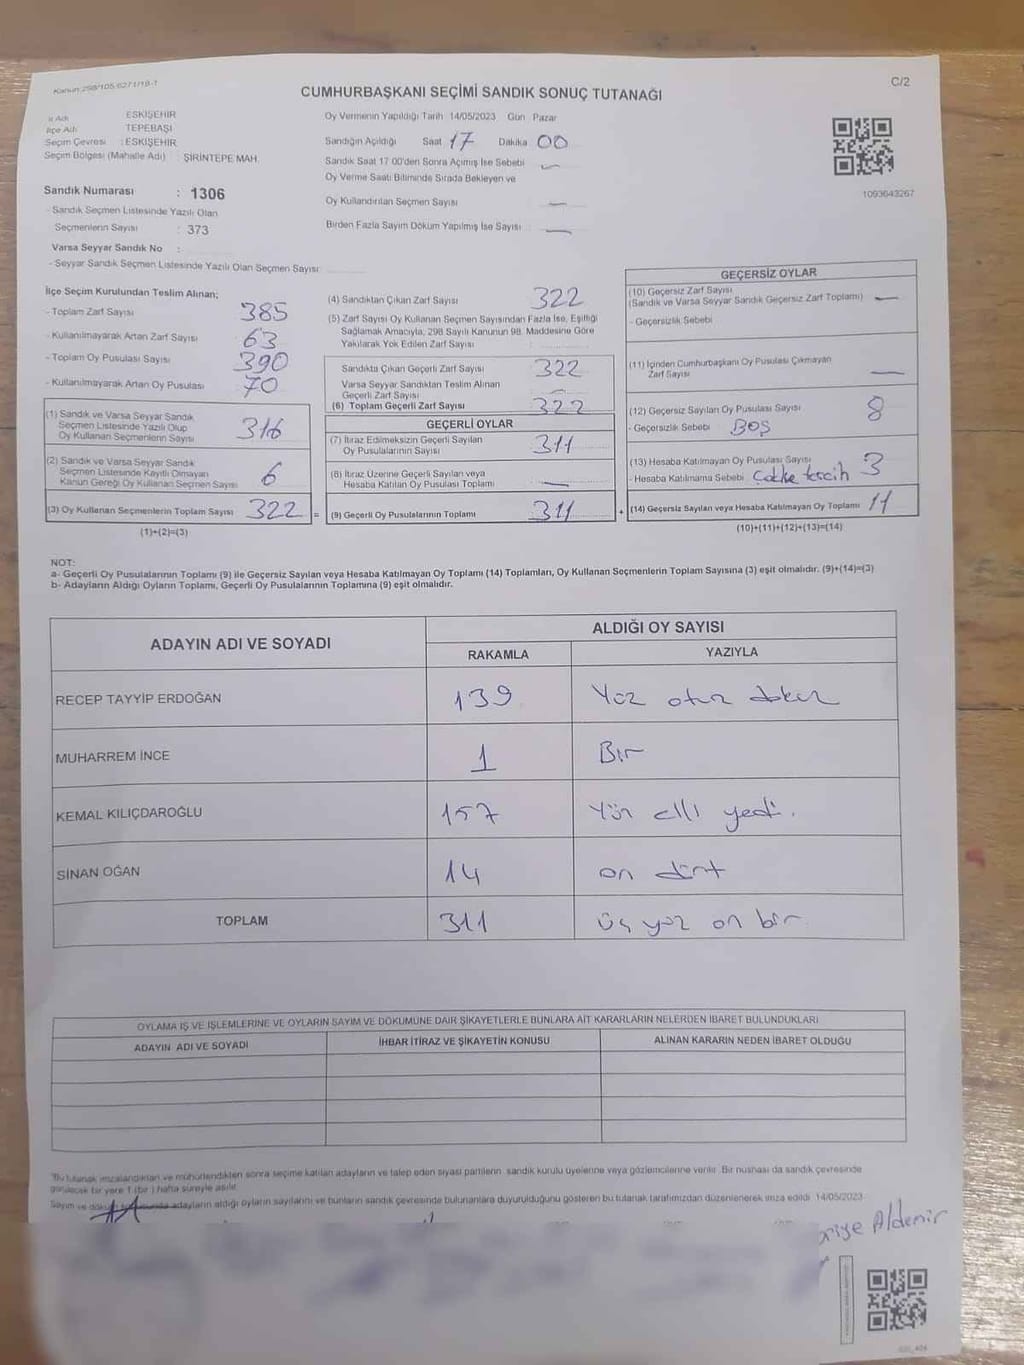 Kanun:298/105;6271/19-1
C/2
CUMHURBAŞKANI SEÇİMİ SANDIK SONUÇ TUTANAĞI
İl Adı ESKİŞEHİR
İlçe Adı TEPEBAŞI
Seçim Çevresi : ESKİŞEHİR
Seçim Bölgesi (Mahalle Adı) : ŞİRİNTEPE MAH.
Sandık Numarası : 1306
- Sandık Seçmen Listesinde Yazılı Olan
Seçmenlerin Sayısı : 373
Varsa Seyyar Sandık No :
- Seyyar Sandık Seçmen Listesinde Yazılı Olan Seçmen Sayısı
Oy Vermenin Yapıldığı Tarih 14/05/2023 Gün Pazar
Sandığın Açıldığı Saat 17 Dakika 00
Sandık Saat 17 00'den Sonra Açımış İse Sebebi —
Oy Verme Saati Bitiminde Sırada Bekleyen ve
Oy Kullandırılan Seçmen Sayısı —
Birden Fazla Sayım Döküm Yapılmış İse Sayısı —
1093643267
İlçe Seçim Kurulundan Teslim Alınan;
- Toplam Zarf Sayısı 385
- Kullanılmayarak Artan Zarf Sayısı 63
- Toplam Oy Pusulası Sayısı 390
- Kullanılmayarak Artan Oy Pusulası 70
(1) Sandık ve Varsa Seyyar Sandık
Seçmen Listesinde Yazılı Olup
Oy Kullanan Seçmenlerin Sayısı 316
(2) Sandık ve Varsa Seyyar Sandık
Seçmen Listesinde Kayıtlı Olmayan
Kanun Gereği Oy Kullanan Seçmen Sayısı 6
(3) Oy Kullanan Seçmenlerin Toplam Sayısı 322 =
(1)+(2)=(3)
(4) Sandıktan Çıkan Zarf Sayısı 322
(5) Zarf Sayısı Oy Kullanan Seçmen Sayısından Fazla İse, Eşitliği
Sağlamak Amacıyla, 298 Sayılı Kanunun 98. Maddesine Göre
Yakılarak Yok Edilen Zarf Sayısı :
Sandıkta Çıkan Geçerli Zarf Sayısı 322
Varsa Seyyar Sandıktan Teslim Alınan
Geçerli Zarf Sayısı —
(6) Toplam Geçerli Zarf Sayısı 322
GEÇERLİ OYLAR
(7) İtiraz Edilmeksizin Geçerli Sayılan
Oy Pusulalarının Sayısı 311
(8) İtiraz Üzerine Geçerli Sayılan veya
Hesaba Katılan Oy Pusulası Toplamı —
(9) Geçerli Oy Pusulalarının Toplamı 311 +
GEÇERSİZ OYLAR
(10) Geçersiz Zarf Sayısı
(Sandık ve Varsa Seyyar Sandık Geçersiz Zarf Toplamı) —
- Geçersizlik Sebebi
(11) İçinden Cumhurbaşkanı Oy Pusulası Çıkmayan
Zarf Sayısı —
(12) Geçersiz Sayılan Oy Pusulası Sayısı 8
- Geçersizlik Sebebi BOŞ
(13) Hesaba Katılmayan Oy Pusulası Sayısı 3
- Hesaba Katılmama Sebebi tercih
(14) Geçersiz Sayılan veya Hesaba Katılmayan Oy Toplamı 11
(10)+(11)+(12)+(13)=(14)
NOT:
a- Geçerli Oy Pusulalarının Toplamı (9) ile Geçersiz Sayılan veya Hesaba Katılmayan Oy Toplamı (14) Toplamları, Oy Kullanan Seçmenlerin Toplam Sayısına (3) eşit olmalıdır. (9)+(14)=(3)
b- Adayların Aldığı Oyların Toplamı, Geçerli Oy Pusulalarının Toplamına (9) eşit olmalıdır.
ADAYIN ADI VE SOYADI
ALDIĞI OY SAYISI
RAKAMLA YAZIYLA
RECEP TAYYİP ERDOĞAN 139 Yüz otuz dokuz
MUHARREM İNCE 1 Bir
KEMAL KILIÇDAROĞLU 157 Yüz elli yedi.
SİNAN OĞAN 14 on dört
TOPLAM 311 üç yüz on bir
OYLAMA İŞ VE İŞLEMLERİNE VE OYLARIN SAYIM VE DÖKÜMÜNE DAİR ŞİKAYETLERLE BUNLARA AİT KARARLARIN NELERDEN İBARET BULUNDUKLARI
ADAYIN ADI VE SOYADI İHBAR İTİRAZ VE ŞİKAYETİN KONUSU ALINAN KARARIN NEDEN İBARET OLDUĞU
"Bu tutanak imzalandıktan ve mühürlendikten sonra seçime katılan adayların ve talep eden siyasi partilerin sandık kurulu üyelerine veya gözlemcilerine verilir. Bir nüshası da sandık çevresinde
görülecek bir yere 1 (bir) hafta süreyle asılır.
Sayım ve döküm sonucunda adayların aldığı oyların sayılarını ve bunların sandık çevresinde bulunanlara duyurulduğunu gösteren bu tutanak tarafımızdan düzenlenerek imza edildi 14/05/2023
Aldemir